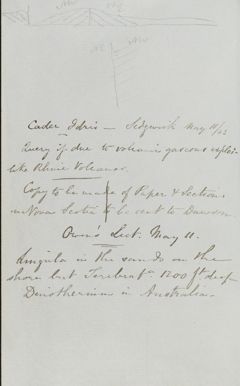 Cader Idris — Sedgwick May 11/63
Query if due to volcanic gaseous explo-
like Rhine Volcanos.
Copy to be made of Paper & Sections
Nova Scotia to be sent to Dawson.
Owen's Lect. May 11.
Lingula in the sands on the
shore but Terebrat. 1200 ft deep
Dinotherium in Australia.